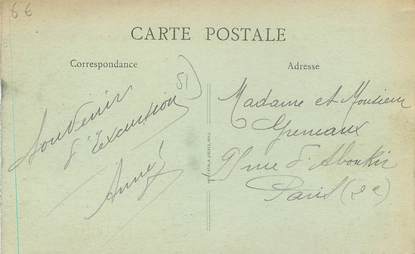 6€
CARTE POSTALE
Correspondance
Adresse
Souvenir
d'Excursion
51
Anny
Madame et Monsieur
Gremaux
95 rue d'Aboukir
Paris (2e)